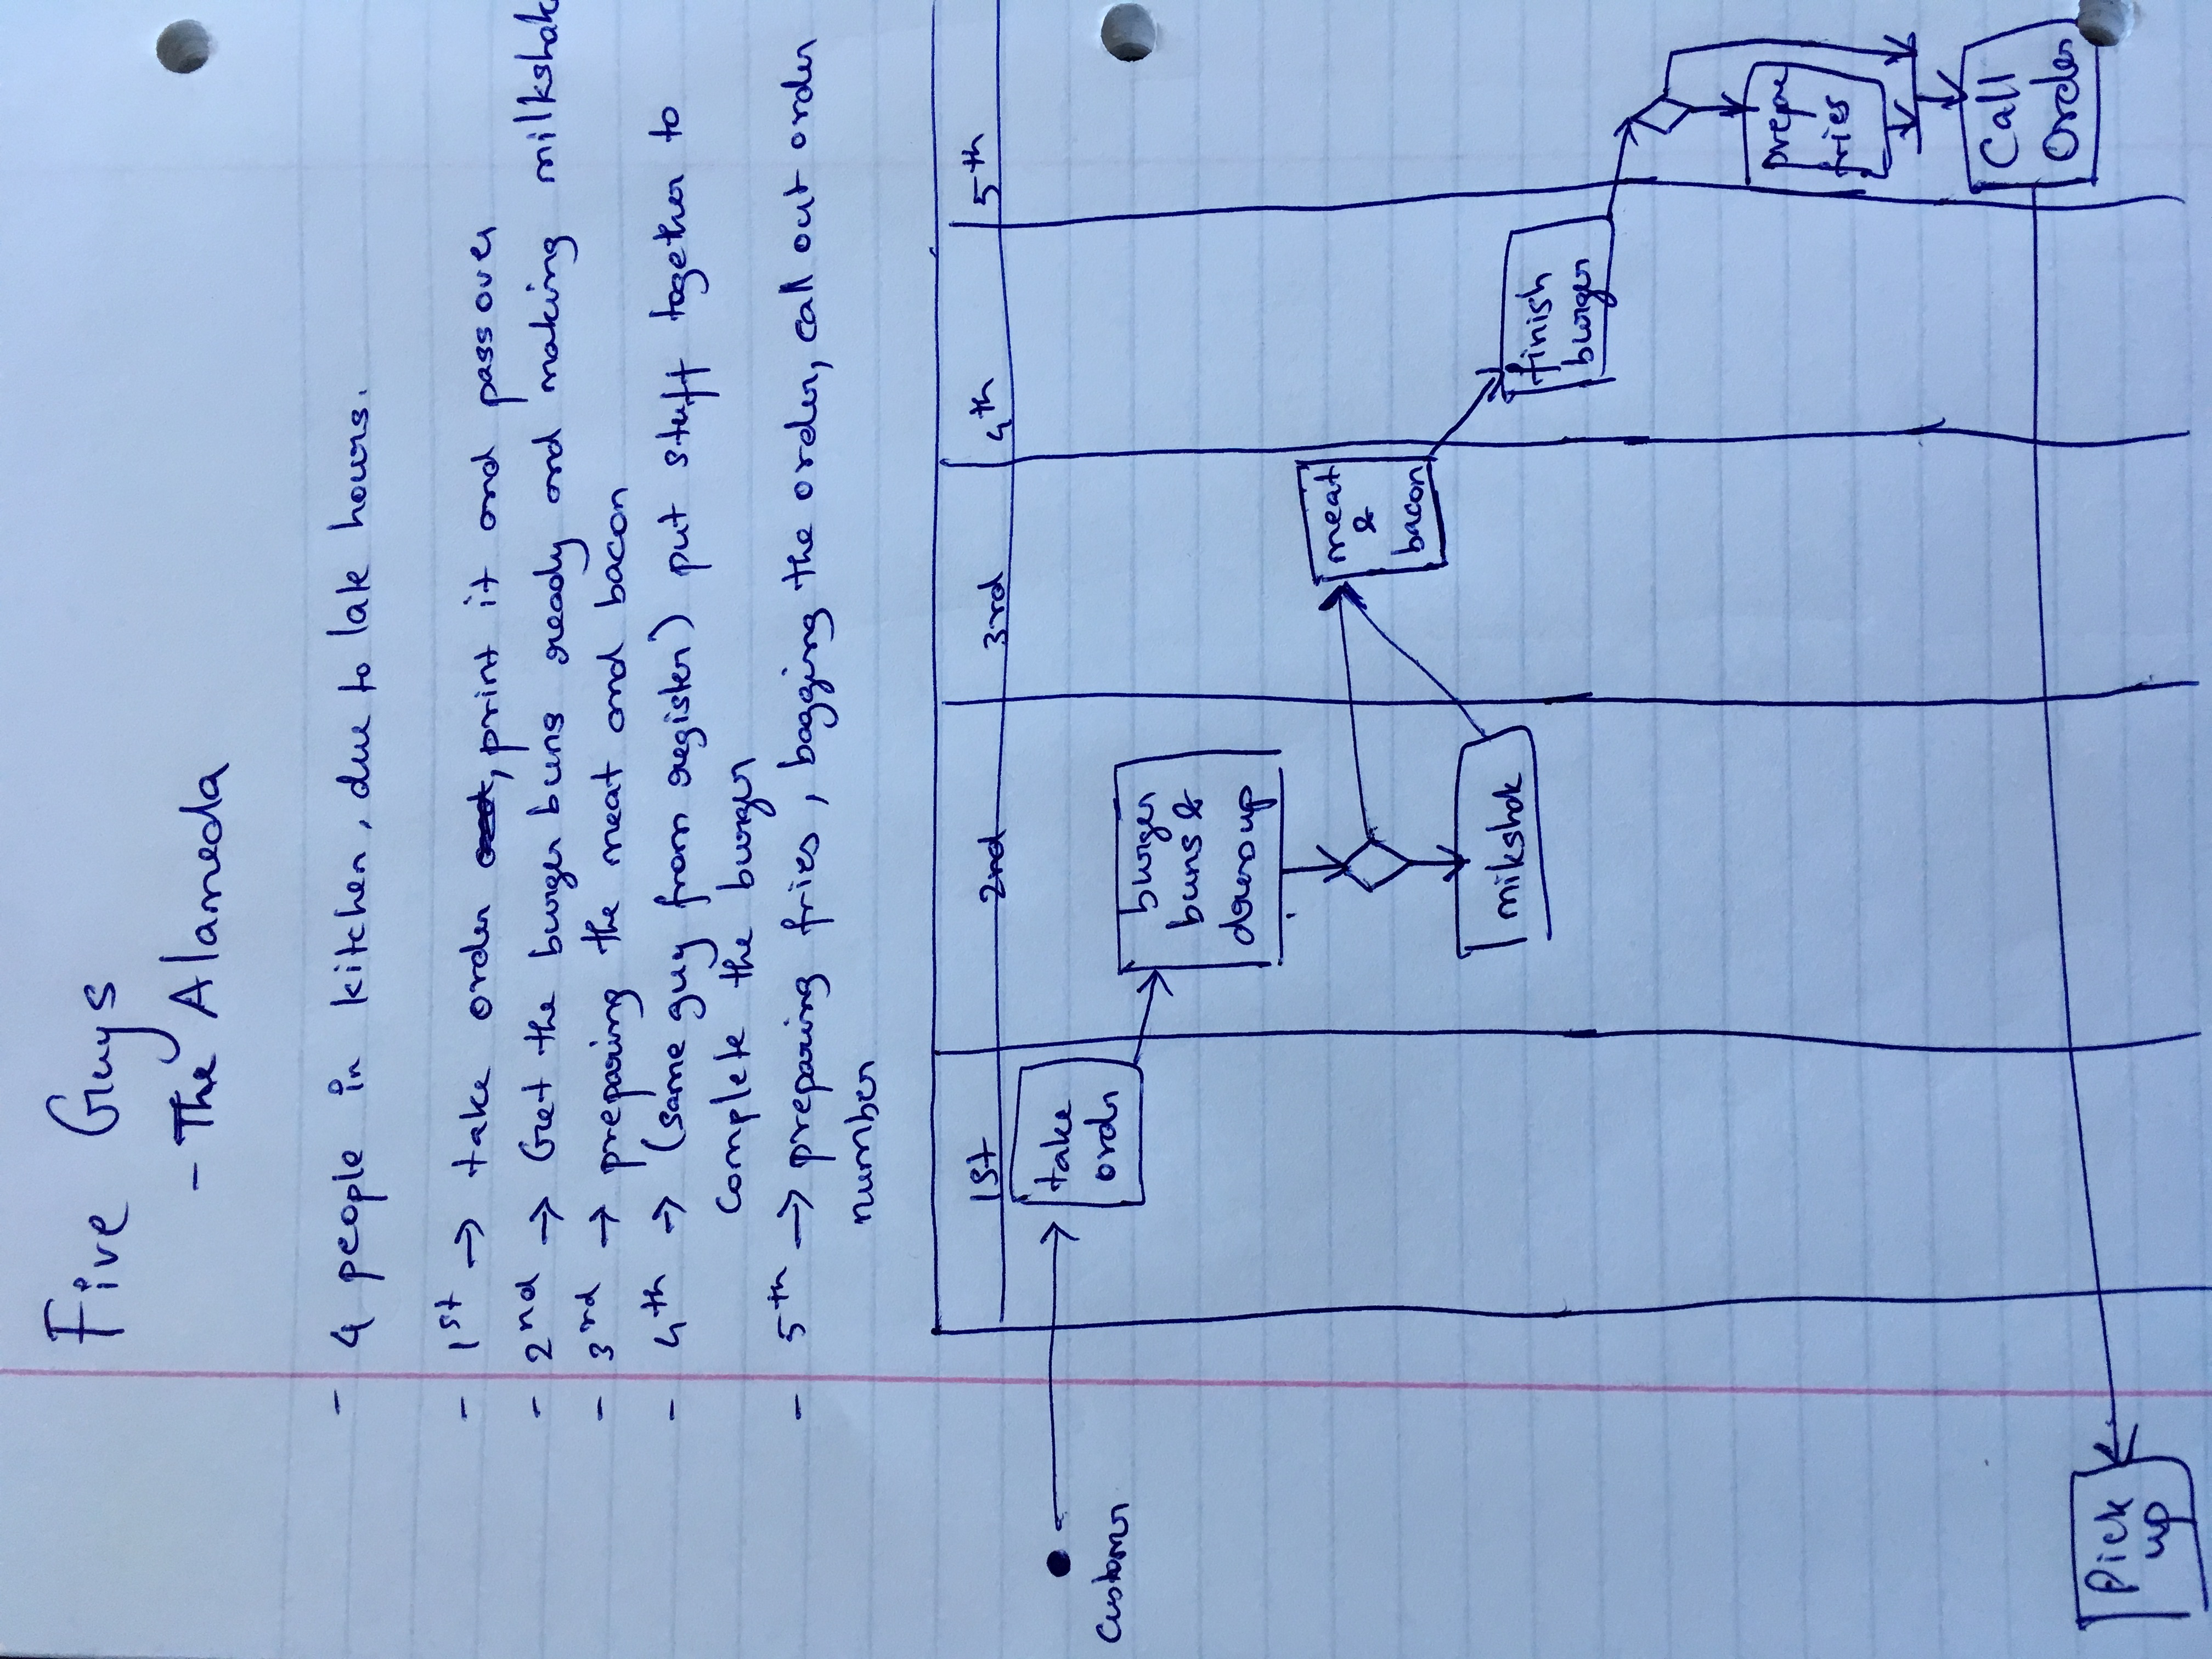 Five Guys
- The Alameda
- 4 people in kitchen, due to late hours.
- 1st → take order, print it and pass over
- 2nd → Get the burger buns ready and making milkshak
- 3rd → preparing the meat and bacon
- 4th → (same guy from register) put stuff together to
complete the burger
- 5th → preparing fries, bagging the order, call out order
number
1st 2nd 3rd 4th 5th
take
order
customer
burger
buns &
dress up
meat
&
bacon
mikshak
finish
burger
prepare
fries
Call
Order
Pick
up